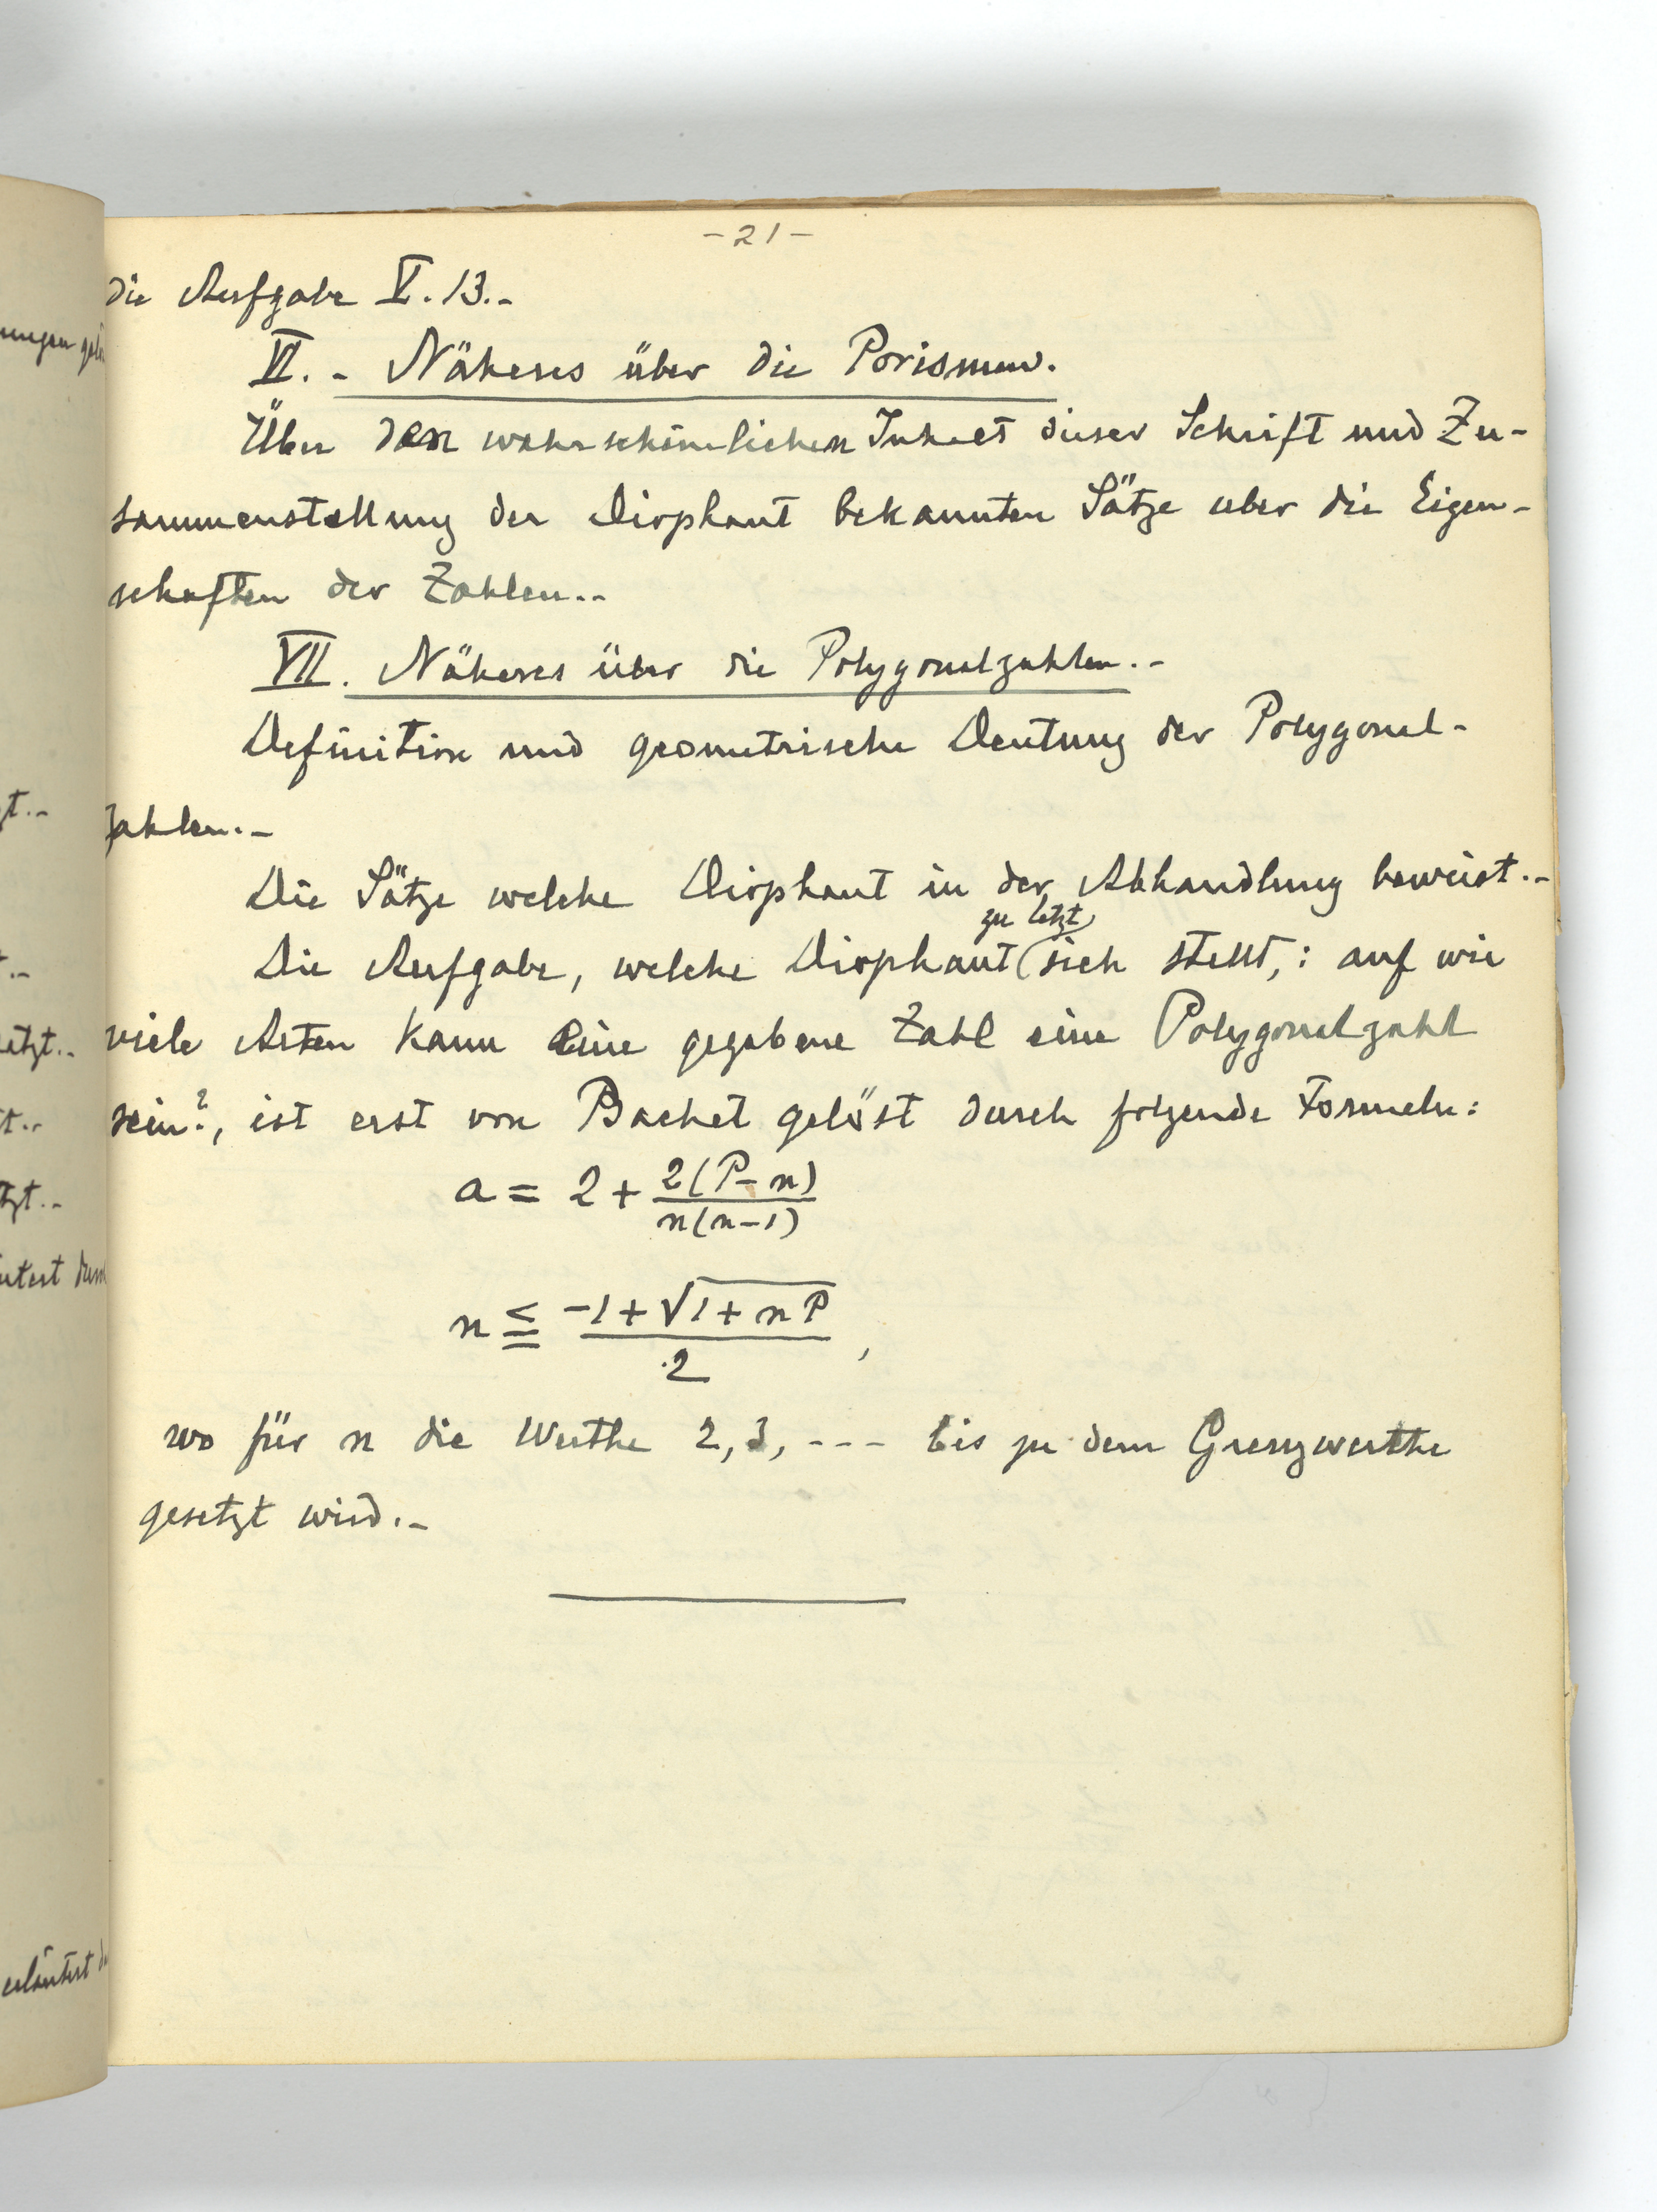 -21-
die Aufgabe V. 13.-
VI. - Näheres über die Porismen.
Über den wahrscheinlichen Inhalt dieser Schrift und Zu-
sammenstellung der Diophant bekannten Sätze über die Eigen-
schaften der Zahlen.-
VII. Näheres über die Polygonalzahlen.-
Definition und geometrische Deutung der Polygonal-
zahlen.-
Die Sätze welche Diophant in der Abhandlung beweist.-
zu letzt
Die Aufgabe, welche Diophant sich stellt,: auf wie
viele Arten kann eine gegebene Zahl eine Polygonalzahl
sein?, ist erst von Bachet gelöst durch folgende Formeln:
a = 2 + 2(P-n) / n(n-1)
n ≦ -1+√1+nP / 2 ,
wo für n die Werthe 2, 3, --- bis zu dem Grenzwerthe
gesetzt wird.-